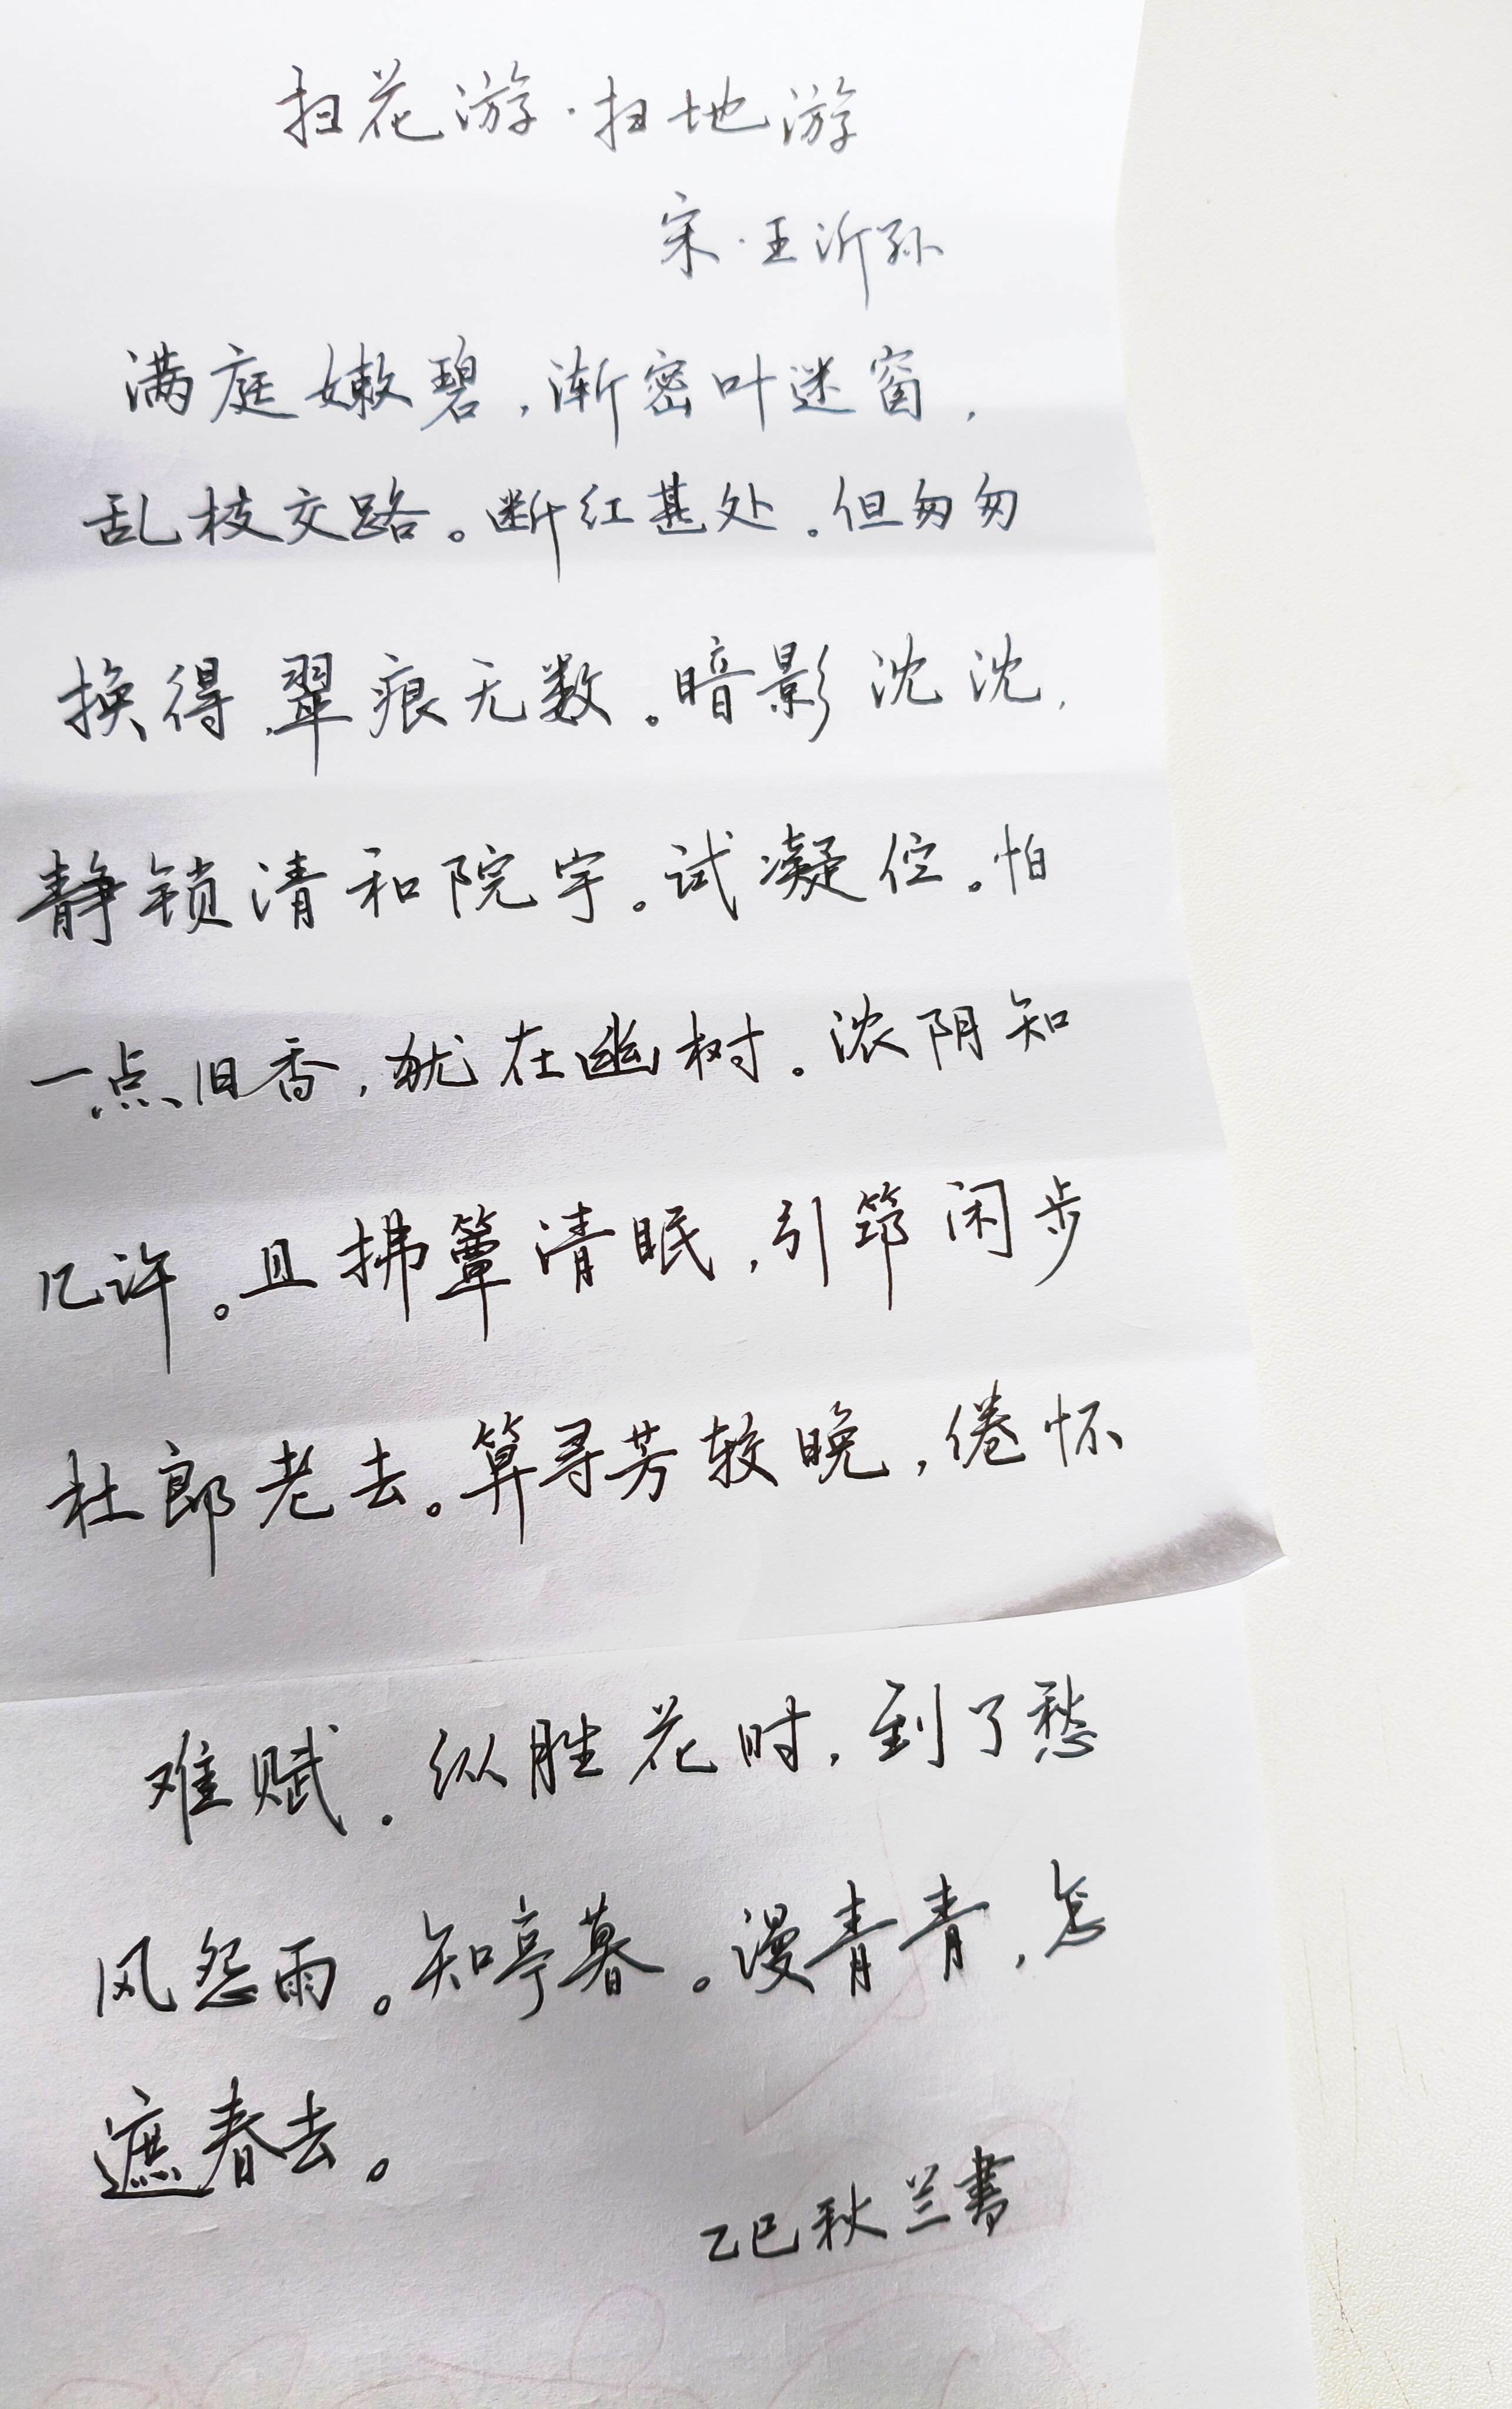 扫花游·扫地游
宋·王沂孙
满庭嫩碧，渐密叶迷窗，
乱枝交路。断红甚处。但匆匆
换得翠痕无数。暗影沈沈，
静锁清和院宇。试凝伫。怕
一点旧香，犹在幽树。浓阴知
几许。且拂簟清眠，引筇闲步
杜郎老去。算寻芳较晚，倦怀
难赋。纵胜花时，到了愁
风怨雨。知亭暮。漫青青，怎
遮春去。
乙巳秋兰書